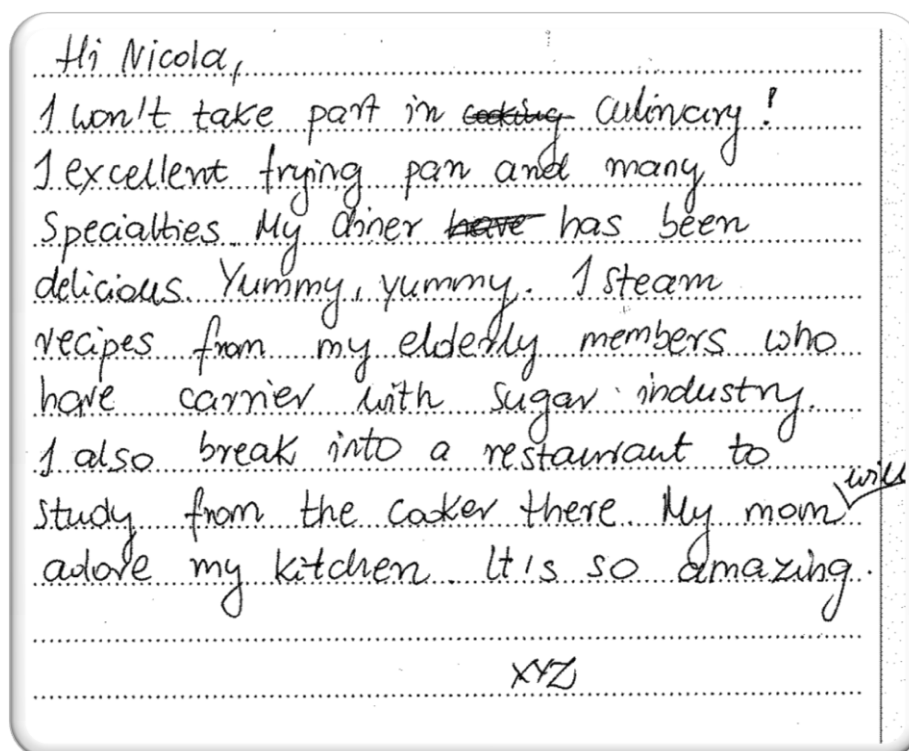 Hi Nicola,
I won't take part in cooking culinary!
I excellent frying pan and many
specialties. My diner have has been
delicious. Yummy, yummy. I steam
recipes from my elderly members who
have carrier with sugar industry.
I also break into a restaurant to
study from the cooker there. My mom will
adore my kitchen. It is so amazing.
XYZ